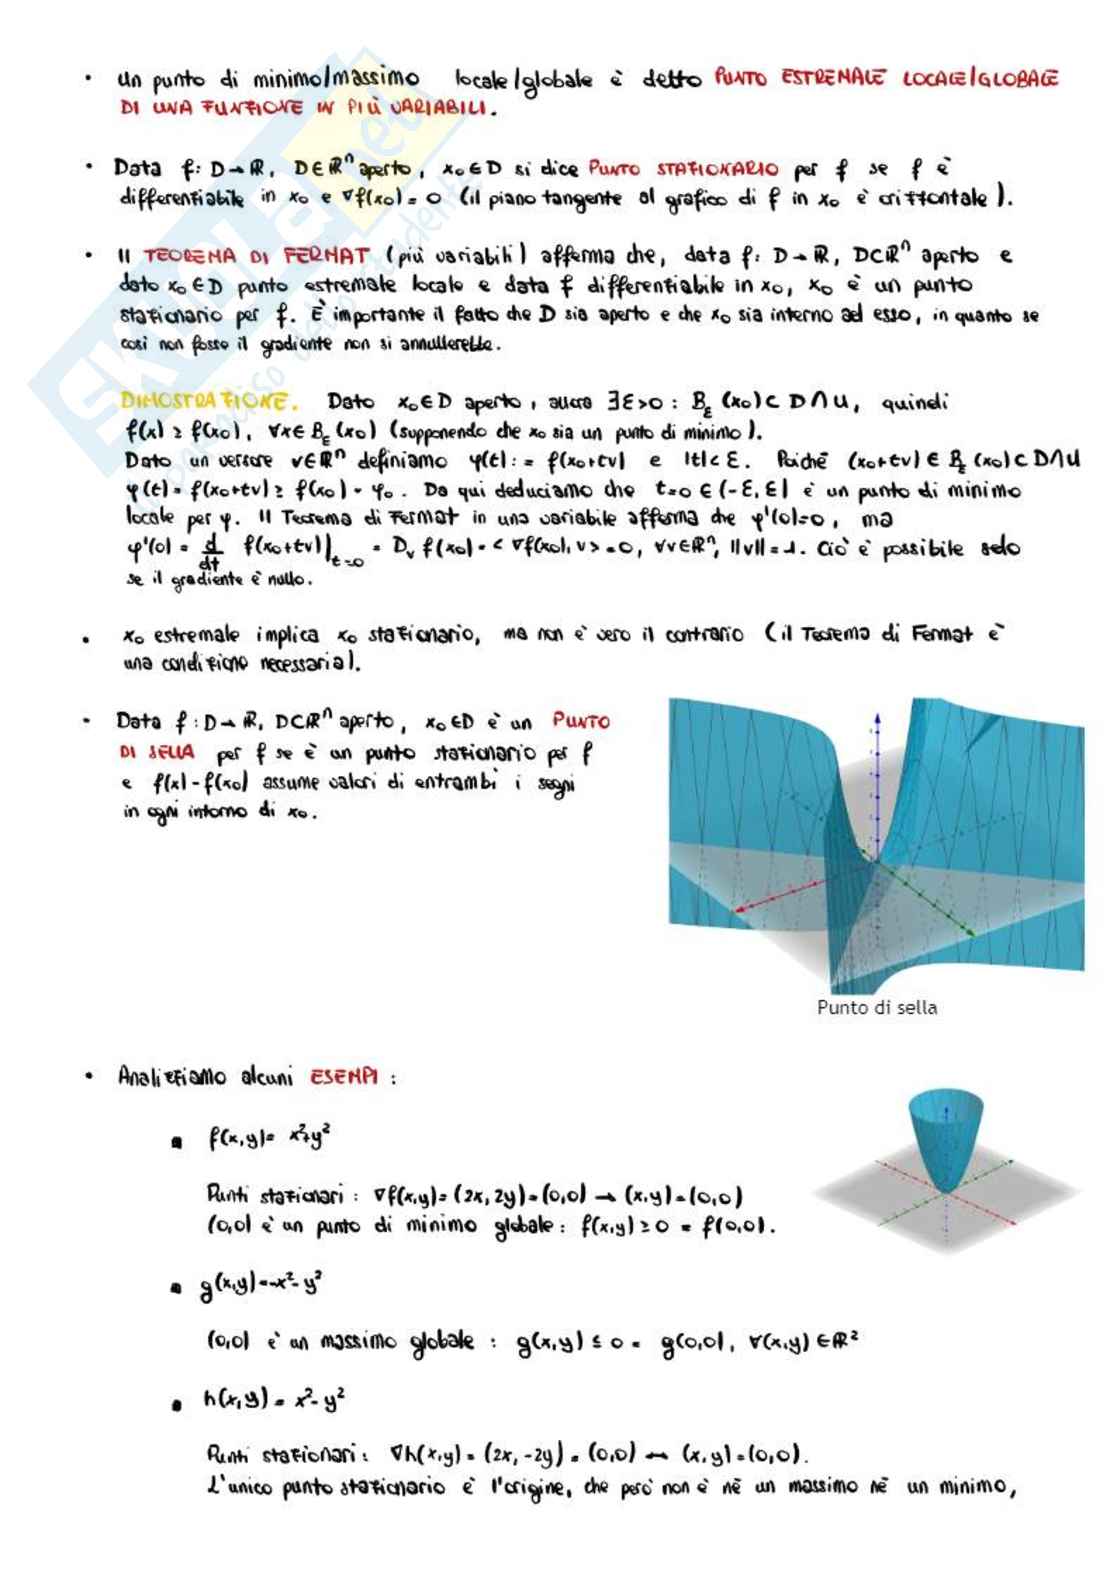 • un punto di minimo/massimo locale/globale è detto PUNTO ESTREMALE LOCALE/GLOBALE
DI UNA FUNZIONE IN PIÙ VARIABILI.
• Data f: D→ℝ, D∈ℝⁿ aperto, x₀∈D si dice PUNTO STAZIONARIO per f se f è
differenziabile in x₀ e ∇f(x₀)=0 (il piano tangente al grafico di f in x₀ è orizzontale).
• Il TEOREMA DI FERMAT (più variabili) afferma che, data f: D→ℝ, D⊂ℝⁿ aperto e
dato x₀∈D punto estremale locale e data f differenziabile in x₀, x₀ è un punto
stazionario per f. È importante il fatto che D sia aperto e che x₀ sia interno ad esso, in quanto se
così non fosse il gradiente non si annullerebbe.
DIMOSTRAZIONE. Dato x₀∈D aperto, allora ∃ε>0 : B_ε(x₀)⊂D∩U, quindi
f(x)≥f(x₀), ∀x∈B_ε(x₀) (supponendo che x₀ sia un punto di minimo).
Dato un versore v∈ℝⁿ definiamo φ(t):= f(x₀+tv) e |t|<ε. Poiché (x₀+tv)∈B_ε(x₀)⊂D∩U
φ(t)=f(x₀+tv)≥f(x₀)=φ₀. Da qui deduciamo che t=0∈(-ε,ε) è un punto di minimo
locale per φ. Il Teorema di Fermat in una variabile afferma che φ'(0)=0, ma
φ'(0)= d/dt f(x₀+tv)|t=0 = D_v f(x₀)=<∇f(x₀),v>=0, ∀v∈ℝⁿ, ||v||=1. Ciò è possibile solo
se il gradiente è nullo.
• x₀ estremale implica x₀ stazionario, ma non è vero il contrario (il Teorema di Fermat è
una condizione necessaria).
• Data f:D→ℝ, D⊂ℝⁿ aperto, x₀∈D è un PUNTO
DI SELLA per f se è un punto stazionario per f
e f(x)-f(x₀) assume valori di entrambi i segni
in ogni intorno di x₀.
Punto di sella
• Analizziamo alcuni ESEMPI :
▪ f(x,y)= x²+y²
Punti stazionari : ∇f(x,y)=(2x,2y)=(0,0)→(x,y)=(0,0)
(0,0) è un punto di minimo globale: f(x,y)≥0=f(0,0).
▪ g(x,y)=-x²-y²
(0,0) è un massimo globale : g(x,y)≤0= g(0,0), ∀(x,y)∈ℝ²
▪ h(x,y)= x²-y²
Punti stazionari: ∇h(x,y)=(2x,-2y)=(0,0)→(x,y)=(0,0).
L'unico punto stazionario è l'origine, che però non è nè un massimo nè un minimo,